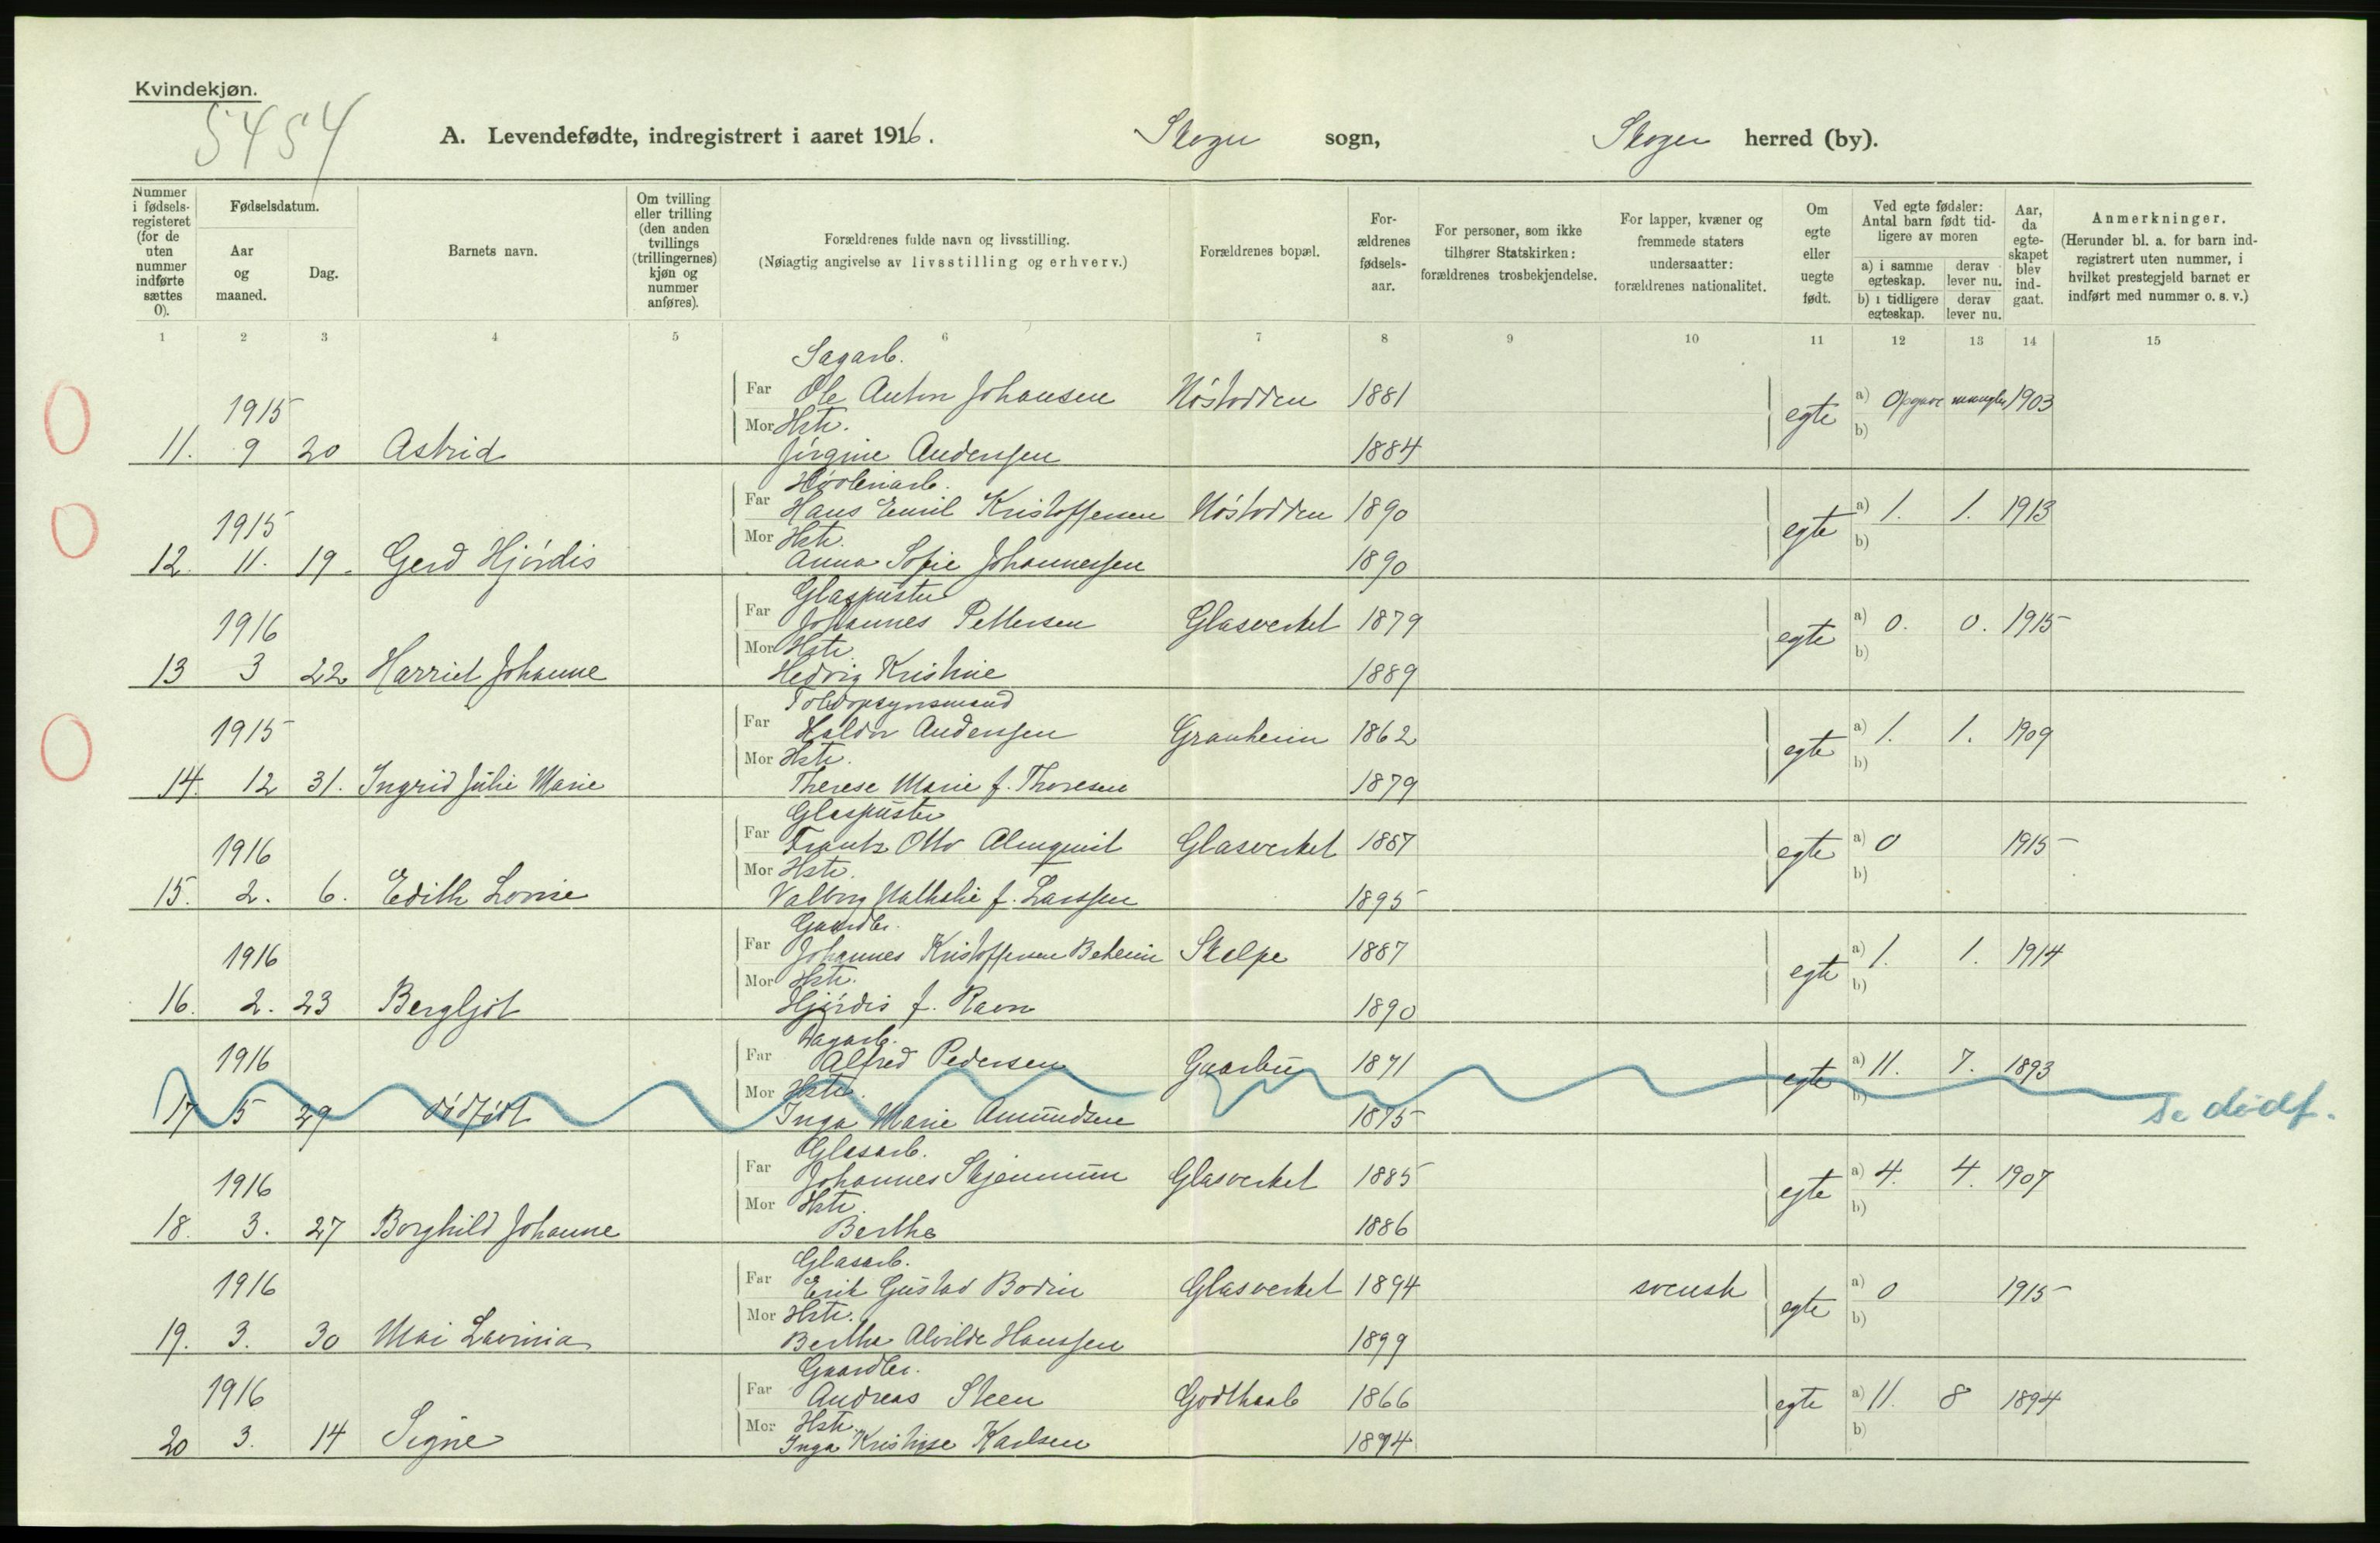 Kvindekjøn.
5454
A. Levendefødte, indregistrert i aaret 1916. Skoger sogn, Skoger herred (by).
Nummer i fødsels-registeret (for de uten nummer indførte sættes 0).
Fødselsdatum.
Aar og maaned.
Dag.
Barnets navn.
Om tvilling eller trilling (den anden tvillings (trillingernes) kjøn og nummer anføres).
Forældrenes fulde navn og livsstilling.
(Nøiagtig angivelse av livsstilling og erhverv.)
Forældrenes bopæl.
For-ældrenes fødsels-aar.
For personer, som ikke tilhører Statskirken: forældrenes trosbekjendelse.
For lapper, kvæner og fremmede staters undersaatter: forældrenes nationalitet.
Om egte eller uegte født.
Ved egte fødsler: Antal barn født tid-ligere av moren
a) i samme egteskap. derav lever nu.
b) i tidligere egteskap. derav lever nu.
Aar, da egte-skapet blev ind-gaat.
Anmerkninger.
(Herunder bl. a. for barn ind-registrert uten nummer, i hvilket prestegjeld barnet er indført med nummer o. s. v.)
1 2 3 4 5 6 7 8 9 10 11 12 13 14 15
Sagarb.
1915 Far Ole Anton Johansen Nøstodden 1881 egte a) Opgave mangler 1903
Mor Hstr. b)
11. 9 20 Astrid Jørgine Anderssen 1884
Høvleriarb.
1915 Far Hans Emil Kristoffersen Nøstodden 1890 egte a) 1. 1. 1913
Mor Hstr. b)
12. 11. 19. Gerd Hjørdis Anna Sofie Johannessen 1890
Glaspuster
1916 Far Johannes Pettersen Glasverket 1879 egte a) 0. 0. 1915
Mor Hstr. b)
13 3 22 Harriet Johanne Hedvig Kristine 1889
Toldopsynsmand
1915 Far Haldor Anderssen Granheim 1862 egte a) 1. 1. 1909
Mor Hstr. b)
14. 12 31. Ingrid Julie Marie Therese Marie f. Thoresen 1879
Glaspuster
1916 Far Frantz Otto Almquist Glasverket 1887 egte a) 0 1915
Mor Hstr. b)
15. 2. 6. Edith Lovise Valborg Nathalie f. Larssen 1895
Gaardbr.
1916 Far Johannes Kristoffersen Beheim Skelpe 1887 egte a) 1. 1. 1914
Mor Hstr. b)
16. 2. 23 Bergljot Hjørdis f. Ravn 1890
Dagarb.
1916 Far Alfred Pedersen Gaarbu 1871 egte a) 11. 7. 1893
Mor Hstr. b)
17 5 29 dødfødt Inga Marie Amundsen 1875 se dødf.
Glasarb.
1916 Far Johannes Skjennum Glasverket 1885 egte a) 4. 4. 1907
Mor Hstr. b)
18. 3. 27 Borghild Johanne Berthe 1886
Glasarb.
1916 Far Erik Gustav Bodin Glasverket 1894 svensk egte a) 0 1915
Mor Hstr. b)
19. 3. 30 Mai Lavinia Berthe Alvilde Hanssen 1899
Gaardbr.
1916 Far Andreas Steen Godthaab 1866 egte a) 11. 8 1894
Mor Hstr. b)
20 3. 14 Signe Inga Kristine Karlsen 1874